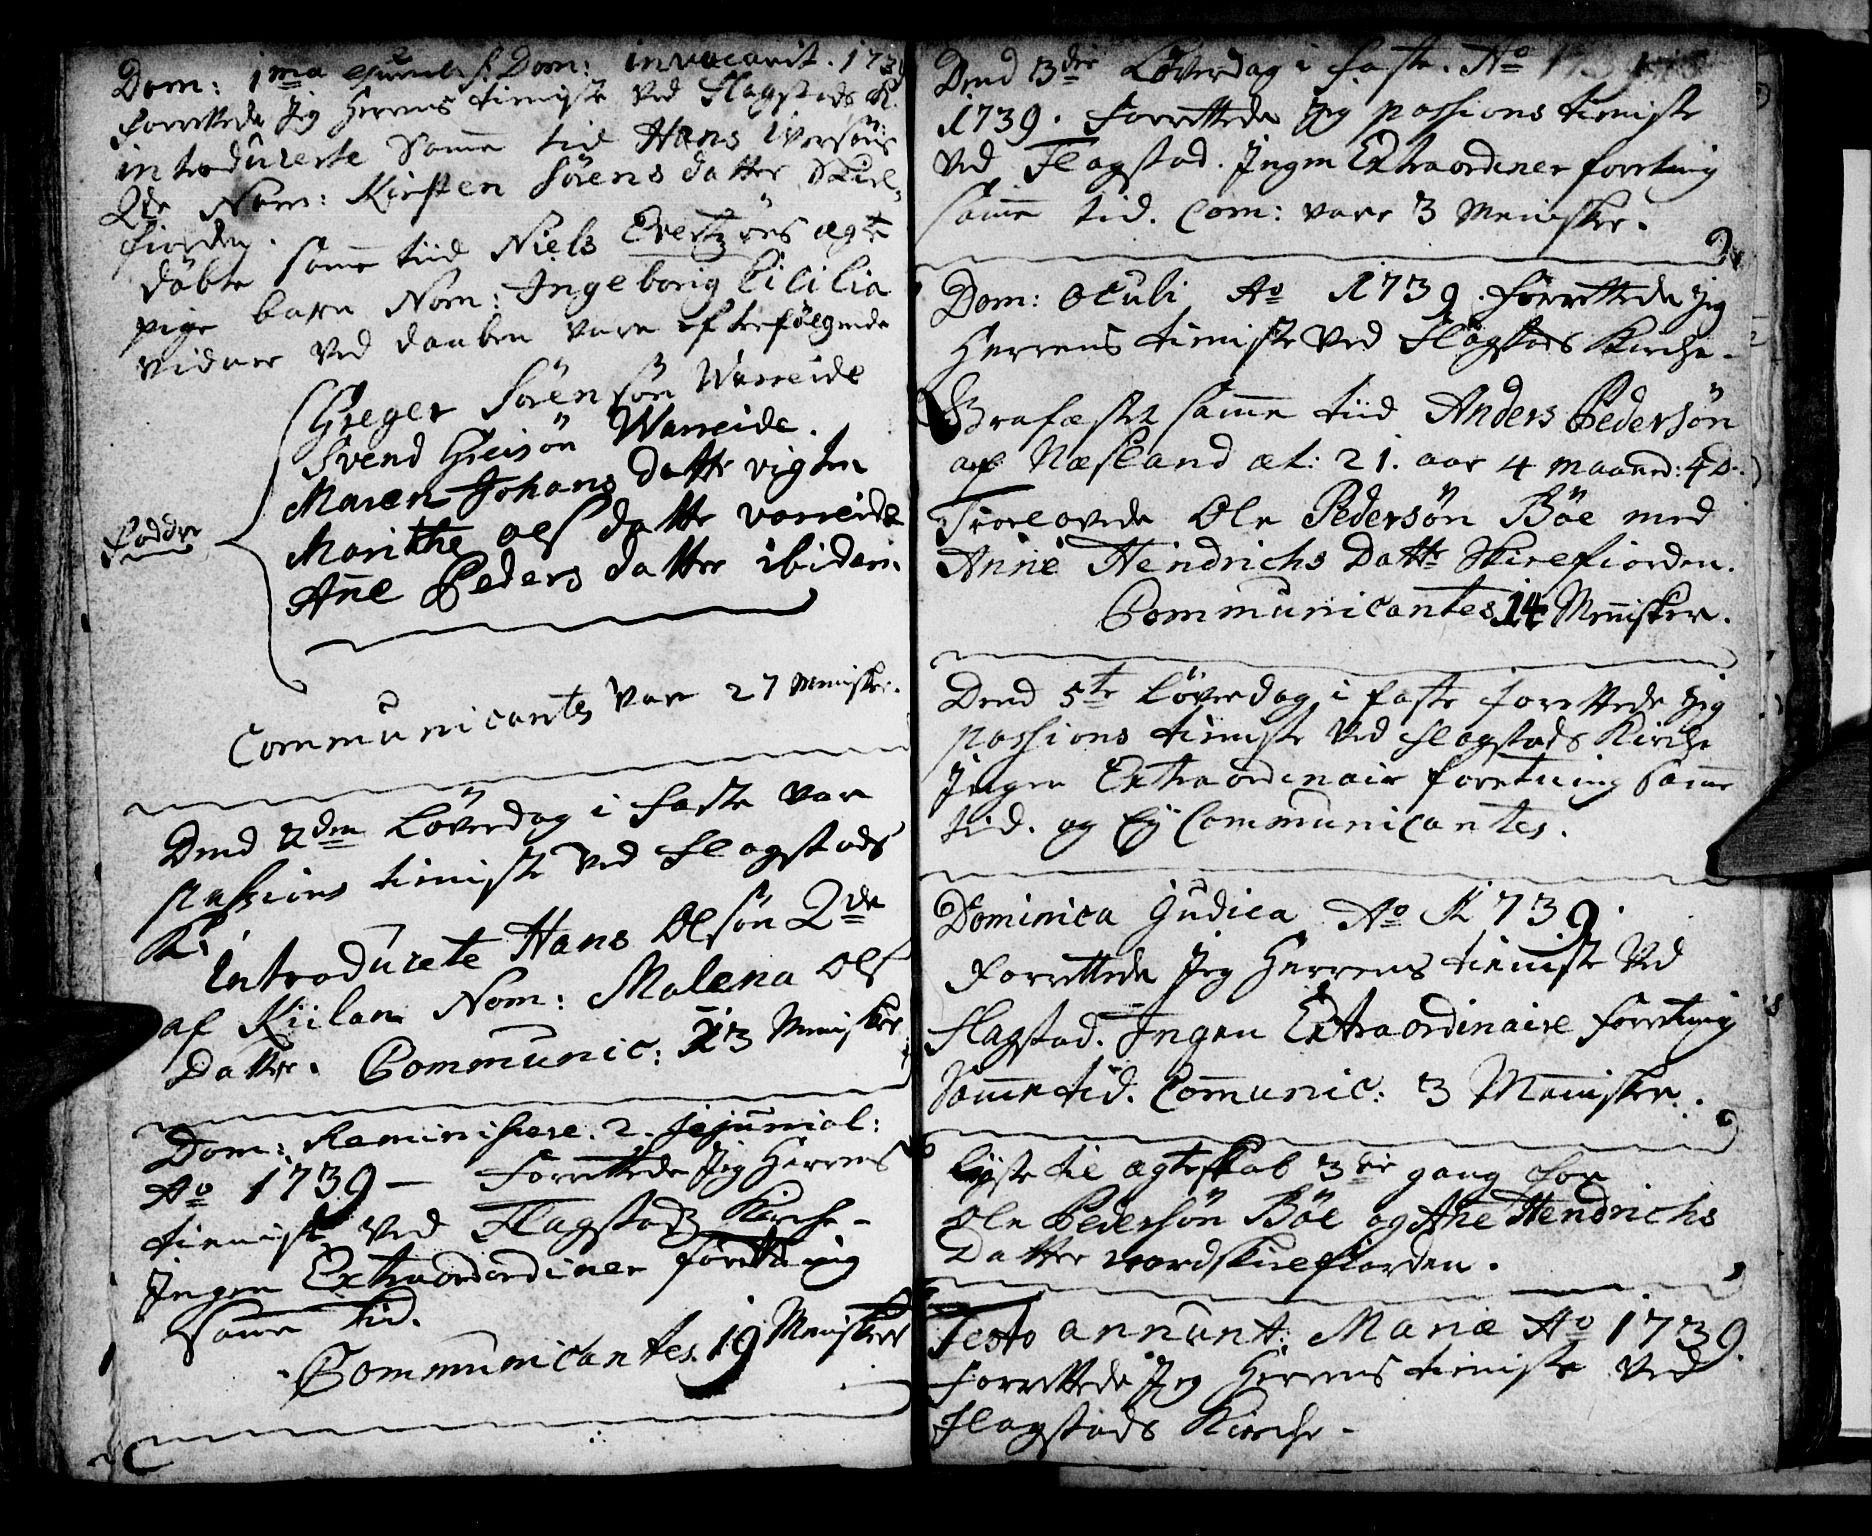 Dom: 1ma qvadr: s. Dom: invocavit. 1739
Forrettede Jeg Herrens tieniste ved Flagstads K.
introducerte Samme tid Hans iversøns
Qde Nom: Kirsten Sørens datter Skiel-
fiorden.
døbte samme tiid Niels Evertzøns ægte
pige barn Nom: Ingeborig Cicilia
vidner ved daaben vare efterfølgende
Faddre
Greger Sørensøn Warreide
Svend Greisøn Warreide.
Maren Johans datter vigten
Marithe ols datter varreide
Ane Peders datter ibidem.
Communicantes vare 27 Mennisker.
Dend 2den Løverdag i faste var
passions tieniste ved Flagstads
K:
Introducete Hans Olsøn Qde
af Kiilan Nom: Malena Ols
Datter. Communic: 13 Mennisker
Dom: Reminiscere. 2. jejunial:
Ao 1739 - Forrettede Jeg Herrens
tieniste ved Flagstads Kirche -
Ingen Extraordordiner forrettning
samme tid.
Communicantes 19 Mennisker
Dend 3die Løverdag i faste. Ao
1739. Forrettede Jeg passions tieniste
ved Flagstad. Ingen Extraordiner forretning
samme tid. Com: vare 3 Mennisker.
Dom: Oculi Ao 1739. Forrettede Jeg
Herrens tieniste ved Flagstads Kirche.
Grafæstet samme tiid Anders Pedersøn
af Næsland æt: 21. aar 4 maaned: 4 D.
Troelovede Ole Pedersøn Böe med
Anne Hendrichs Datter Skielfiorden.
Communicantes 14 Mennisker.
Dend 5te Løverdag i faste forrettede Jeg
passions tieniste ved Flagstads Kirche
Ingen Extraordinair forretning samme
tid. og Ey Communicantes.
Dominica Judica Ao 1739.
Forrettede Jeg Herrens tieniste ved
Flagstad. Ingen Extraordinaire forretning
Samme tid. Communic: 3 Mennisker.
Lyste til ægteskab 3die gang for
Ole Pedersøn Böe og Ane Hendrichs
Datter nordskielfiorden.
Festo annunt: Mariæ Ao 1739.
Forrettede Jeg Herrens tieniste ved
Flagstads Kirche -